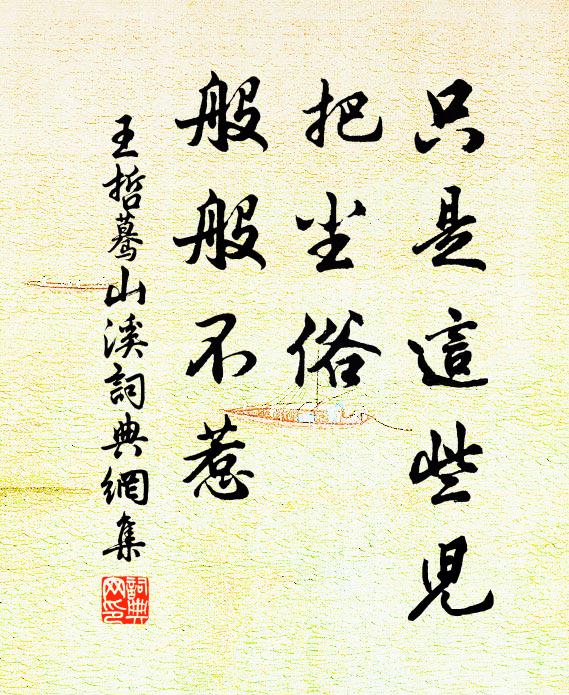 只是這些兒
把尘俗
般般不惹
王哲蓦山溪詞典網集
詞典网印